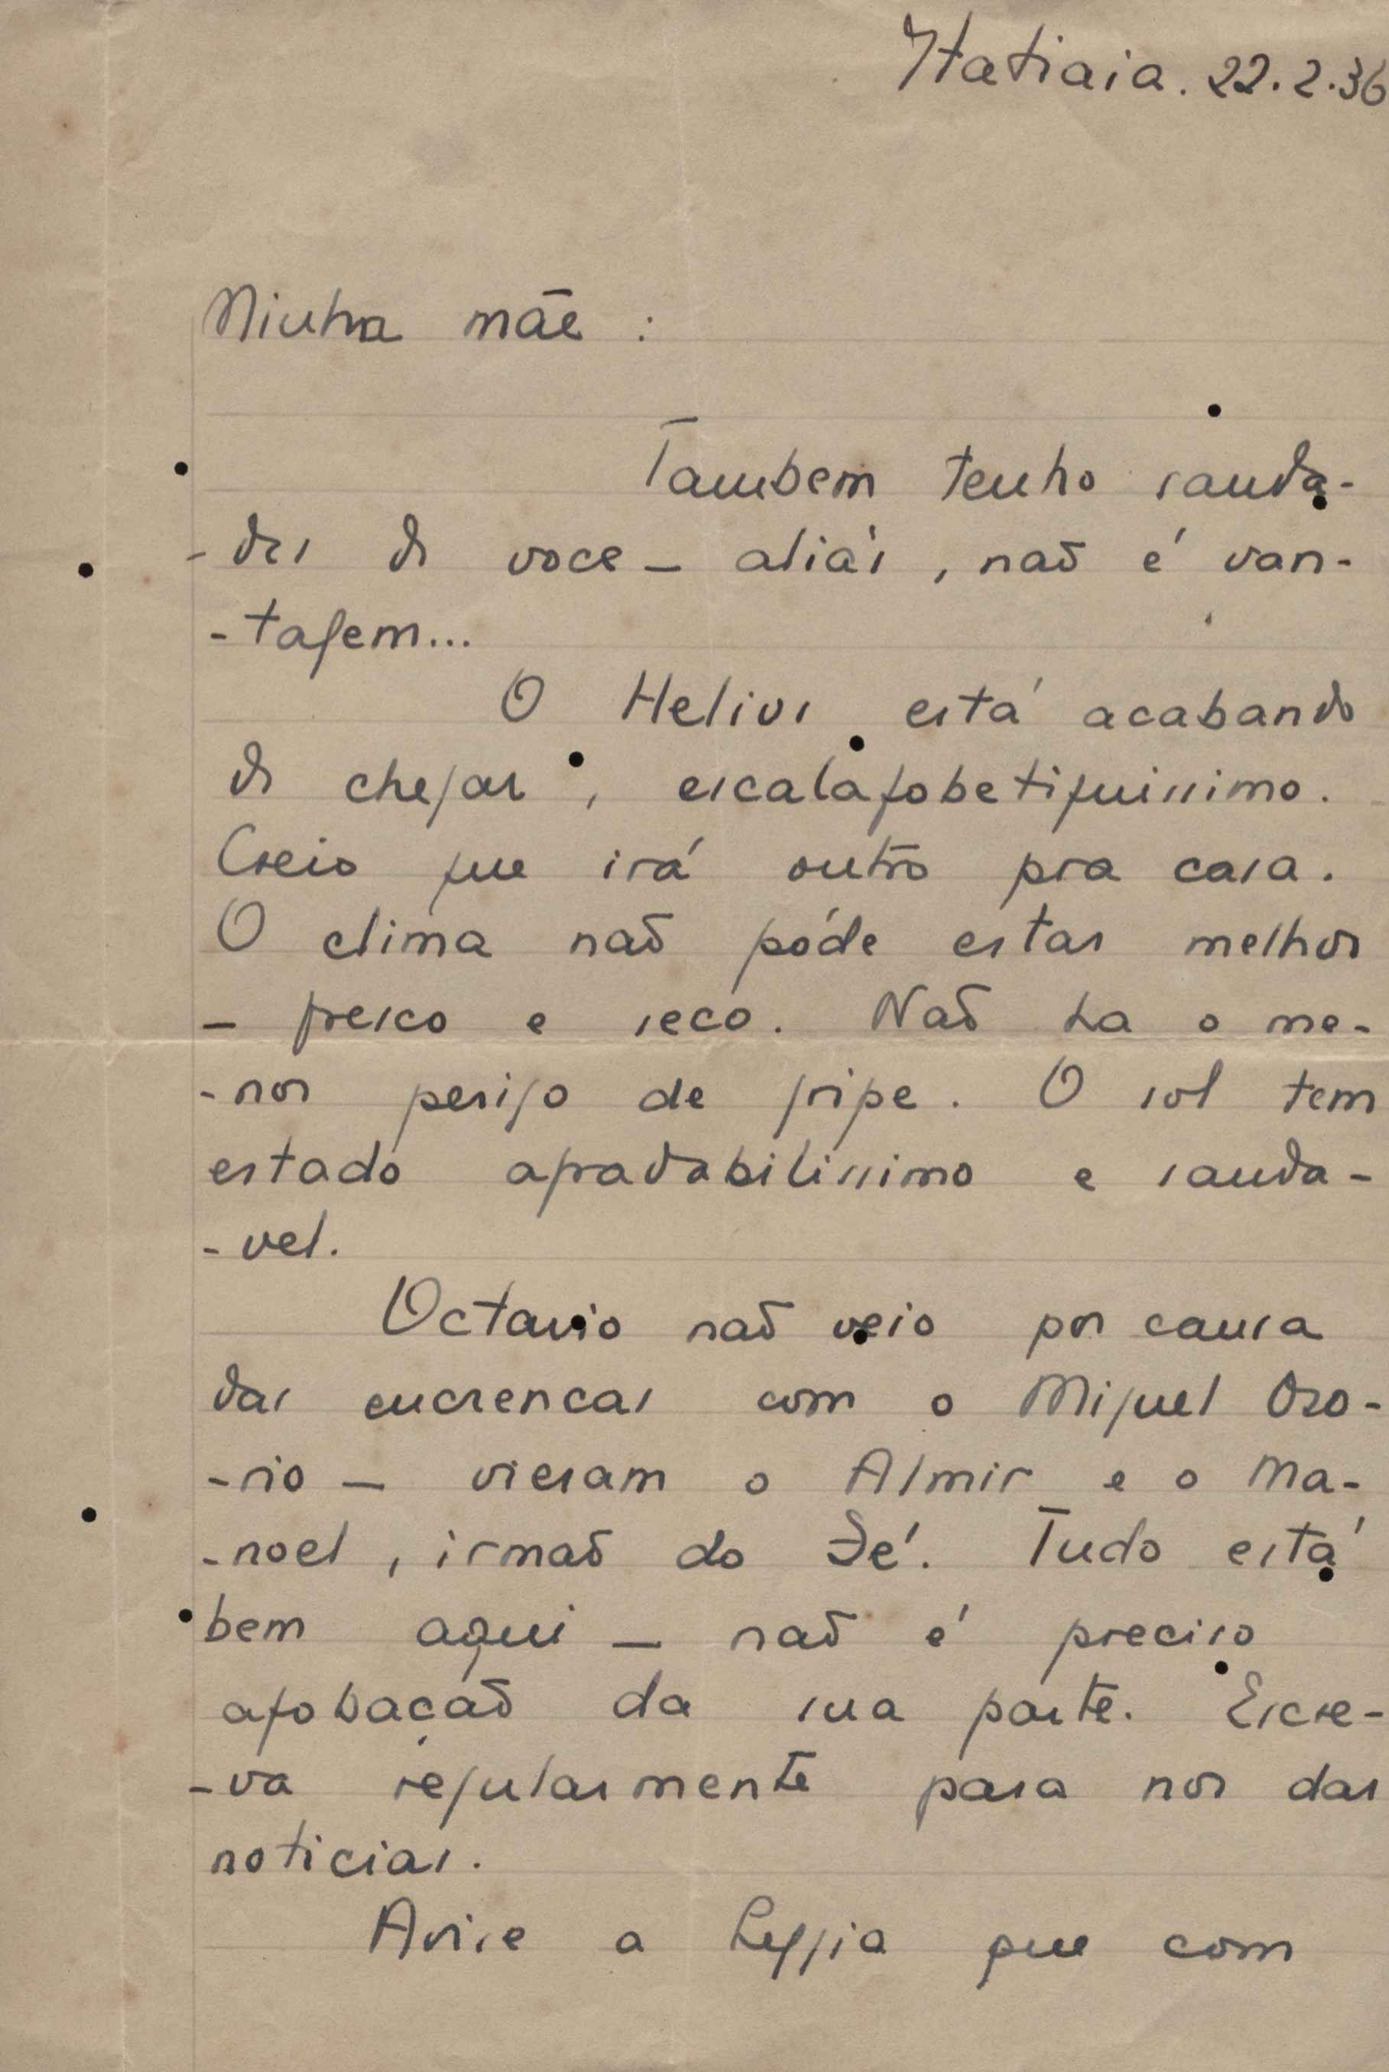 Itatiaia. 22.2.36
Minha mãe :
Tambem tenho sauda-
-des de voce – aliás, naõ é van-
-tagem...
O Helios está acabando
de chegar, escalafobetiquissimo.
Creio que irá outro pra casa.
O clima naõ póde estar melhor
– fresco e seco. Naõ ha o me-
-nor perigo de gripe. O sol tem
estado agradabilissimo e sauda-
-vel.
Octavio naõ veio por causa
das encrencas com o Miguel Ozo-
-rio – vieram o Almir e o Ma-
-noel, irmaõ do Zé. Tudo está
bem aqui – naõ é preciso
afobaçaõ da sua parte. Escre-
-va regularmente para nos dar
noticias.
Avise a que com